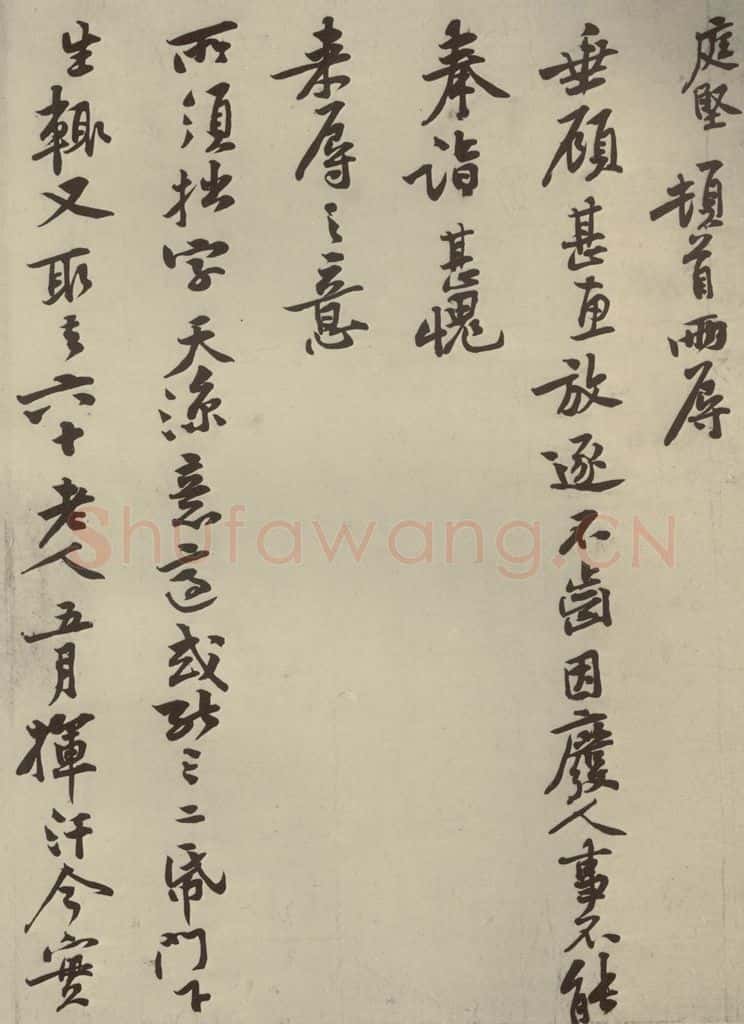 庭堅頓首兩辱
垂顧甚惠放逐不齒因廢人事不能
奉詣甚愧
来辱之意
所須拙字天凉意適或能三二紙門下
生輙又取去六十老人五月揮汗今實
Shufawang.CN